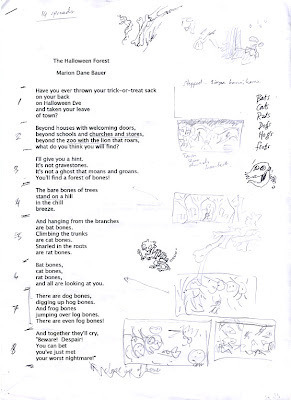 The Halloween Forest
Marion Dane Bauer
1
Have you ever thrown your trick-or-treat sack
on your back
on Halloween Eve
and taken your leave
of town?
2
Beyond houses with welcoming doors,
beyond schools and churches and stores,
beyond the zoo with the lion that roars,
what do you think you will find?
3
I'll give you a hint.
It's not gravestones.
It's not a ghost that moans and groans.
You'll find a forest of bones!
4
The bare bones of trees
stand on a hill
in the chill
breeze.
5
And hanging from the branches
are bat bones.
Climbing the trunks
are cat bones.
Snarled in the roots
are rat bones.
6
Bat bones,
cat bones,
rat bones,
and all are looking at you.
7
There are dog bones,
digging up hog bones.
And frog bones
jumping over log bones.
There are even fog bones!
8
And together they'll cry,
"Beware! Despair!
You can bet
you've just met
your worst nightmare!"
Bats
Cats
Rats
Dogs
Hogs